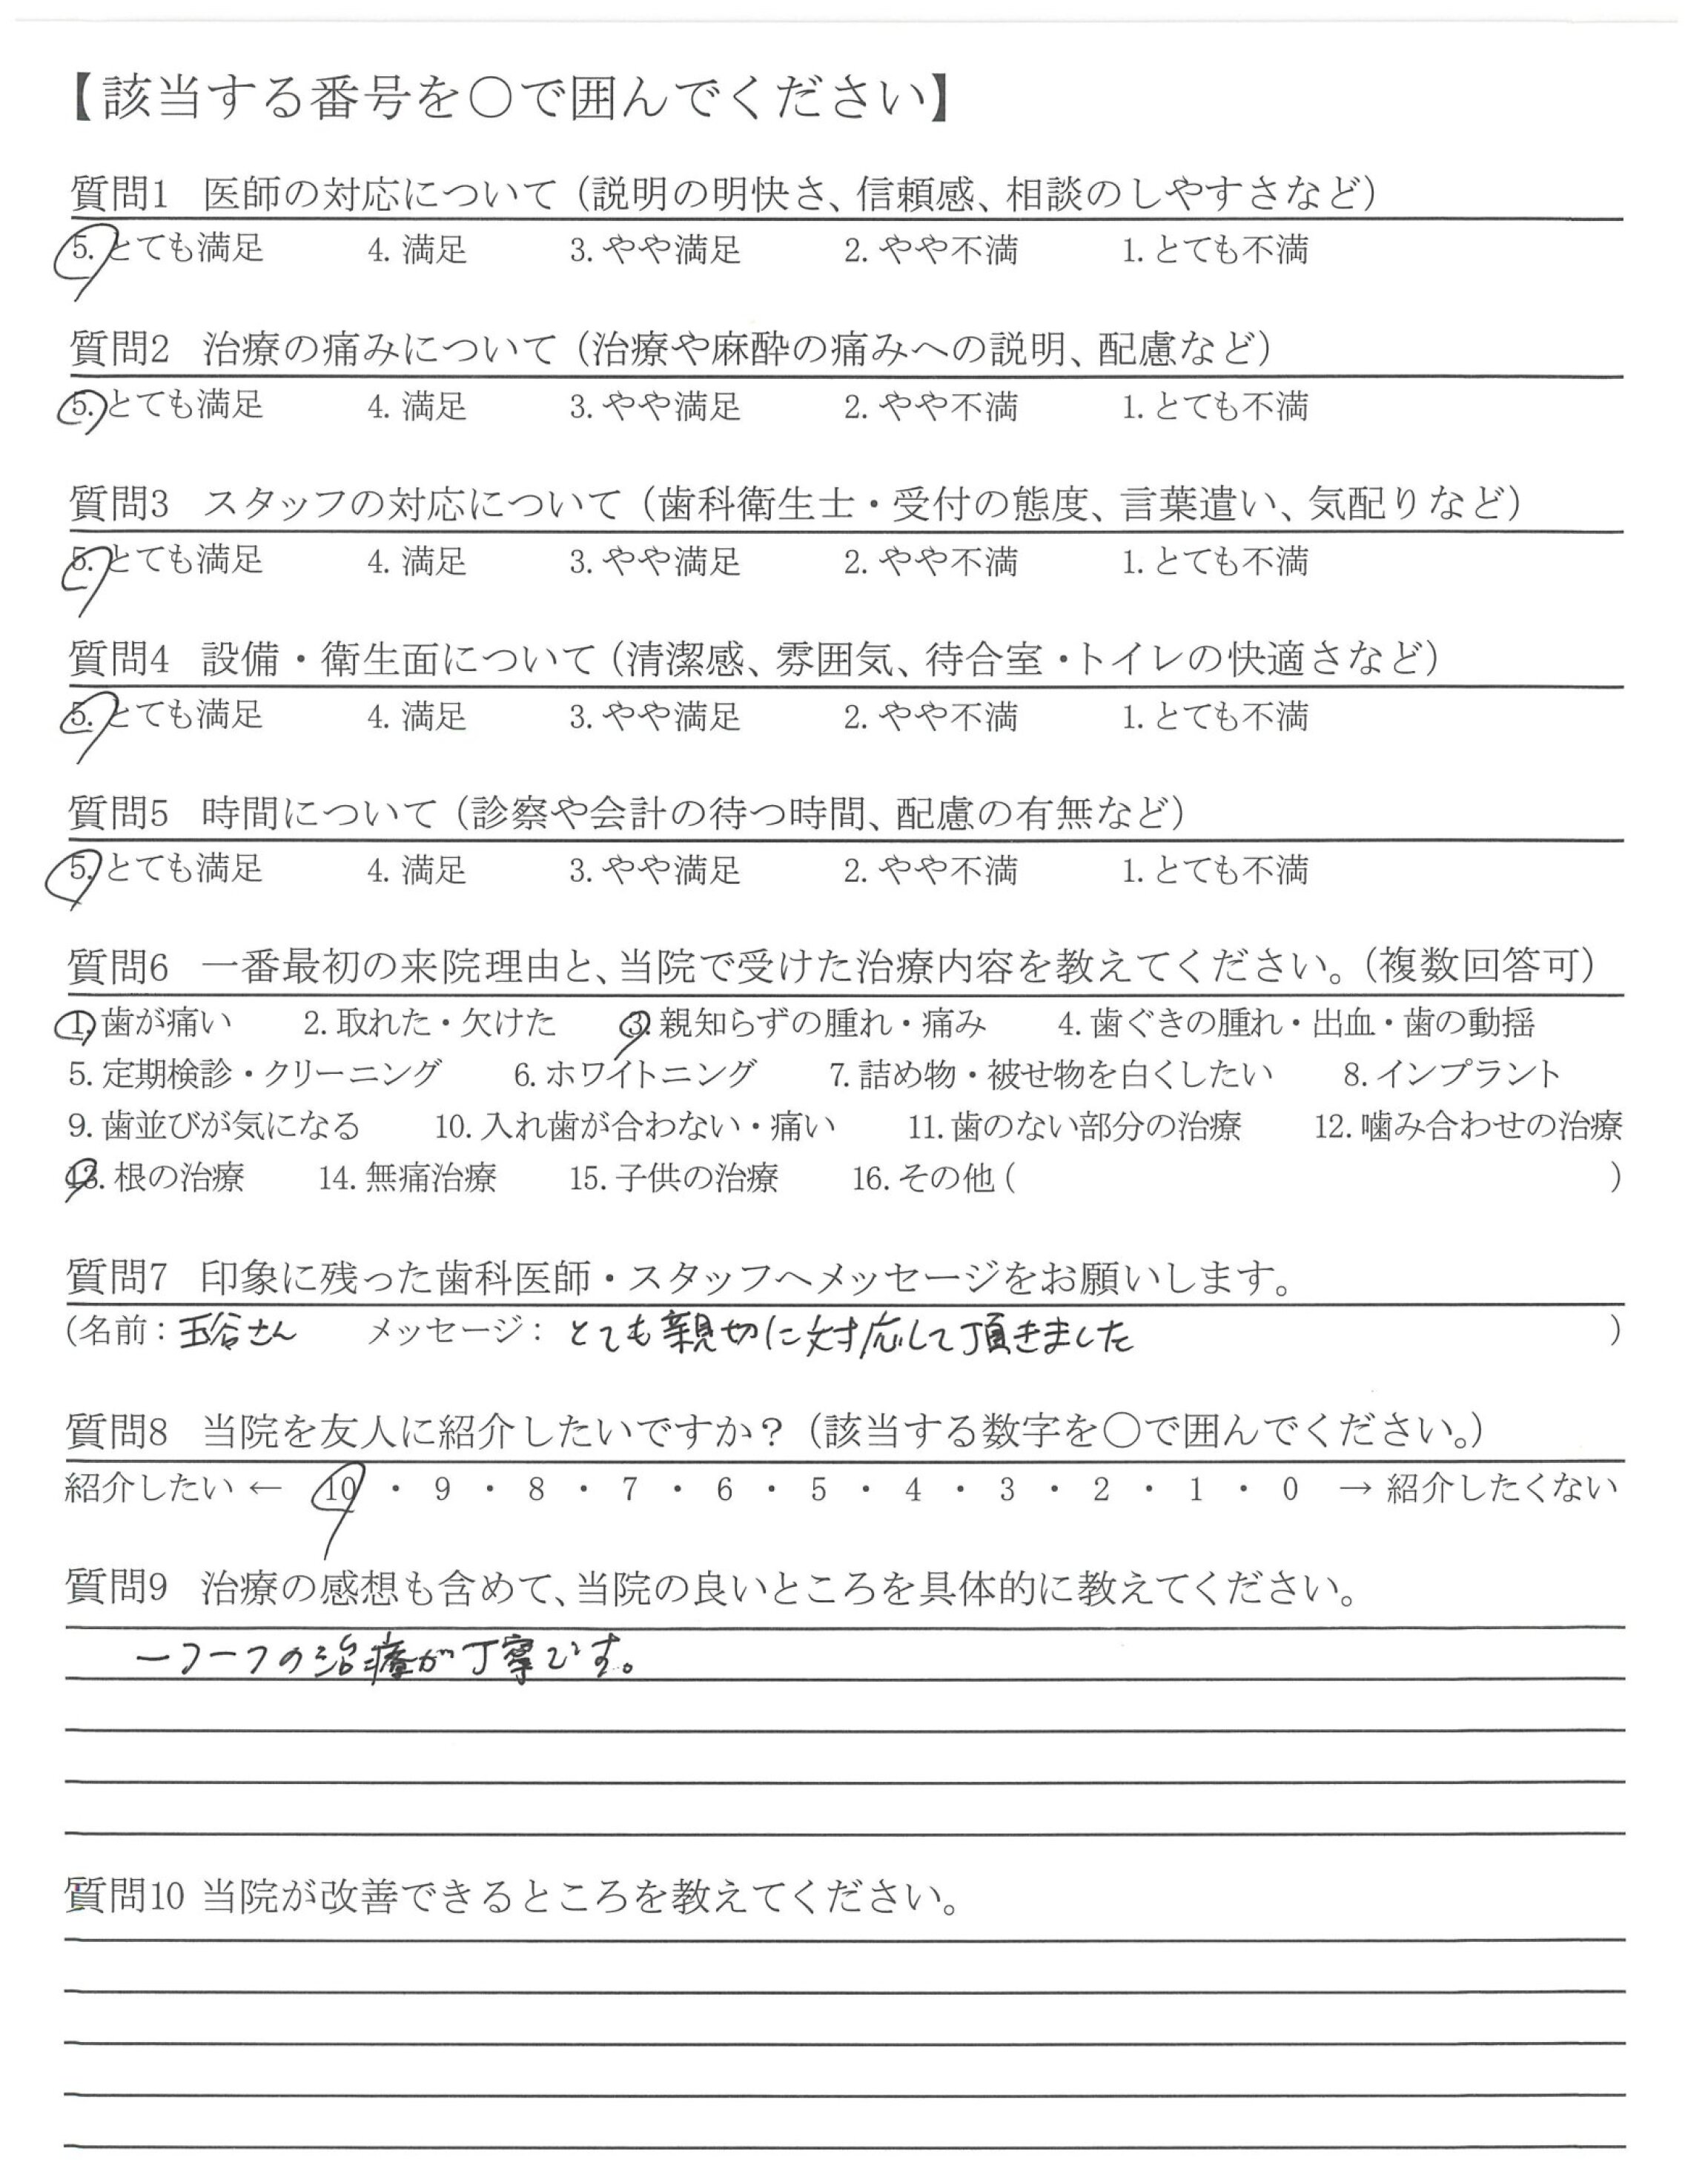 【該当する番号を○で囲んでください】
質問1 医師の対応について（説明の明快さ、信頼感、相談のしやすさなど）
5. とても満足 4. 満足 3. やや満足 2. やや不満 1. とても不満
質問2 治療の痛みについて（治療や麻酔の痛みへの説明、配慮など）
5. とても満足 4. 満足 3. やや満足 2. やや不満 1. とても不満
質問3 スタッフの対応について（歯科衛生士・受付の態度、言葉遣い、気配りなど）
5. とても満足 4. 満足 3. やや満足 2. やや不満 1. とても不満
質問4 設備・衛生面について（清潔感、雰囲気、待合室・トイレの快適さなど）
5. とても満足 4. 満足 3. やや満足 2. やや不満 1. とても不満
質問5 時間について（診察や会計の待つ時間、配慮の有無など）
5. とても満足 4. 満足 3. やや満足 2. やや不満 1. とても不満
質問6 一番最初の来院理由と、当院で受けた治療内容を教えてください。（複数回答可）
1. 歯が痛い 2. 取れた・欠けた 3. 親知らずの腫れ・痛み 4. 歯ぐきの腫れ・出血・歯の動揺
5. 定期検診・クリーニング 6. ホワイトニング 7. 詰め物・被せ物を白くしたい 8. インプラント
9. 歯並びが気になる 10. 入れ歯が合わない・痛い 11. 歯のない部分の治療 12. 噛み合わせの治療
13. 根の治療 14. 無痛治療 15. 子供の治療 16. その他（ ）
質問7 印象に残った歯科医師・スタッフへメッセージをお願いします。
（名前：玉谷さん メッセージ：とても親切に対応して頂きました ）
質問8 当院を友人に紹介したいですか？（該当する数字を○で囲んでください。）
紹介したい ← 10 ・ 9 ・ 8 ・ 7 ・ 6 ・ 5 ・ 4 ・ 3 ・ 2 ・ 1 ・ 0 → 紹介したくない
質問9 治療の感想も含めて、当院の良いところを具体的に教えてください。
一つ一つの治療が丁寧です。
質問10 当院が改善できるところを教えてください。